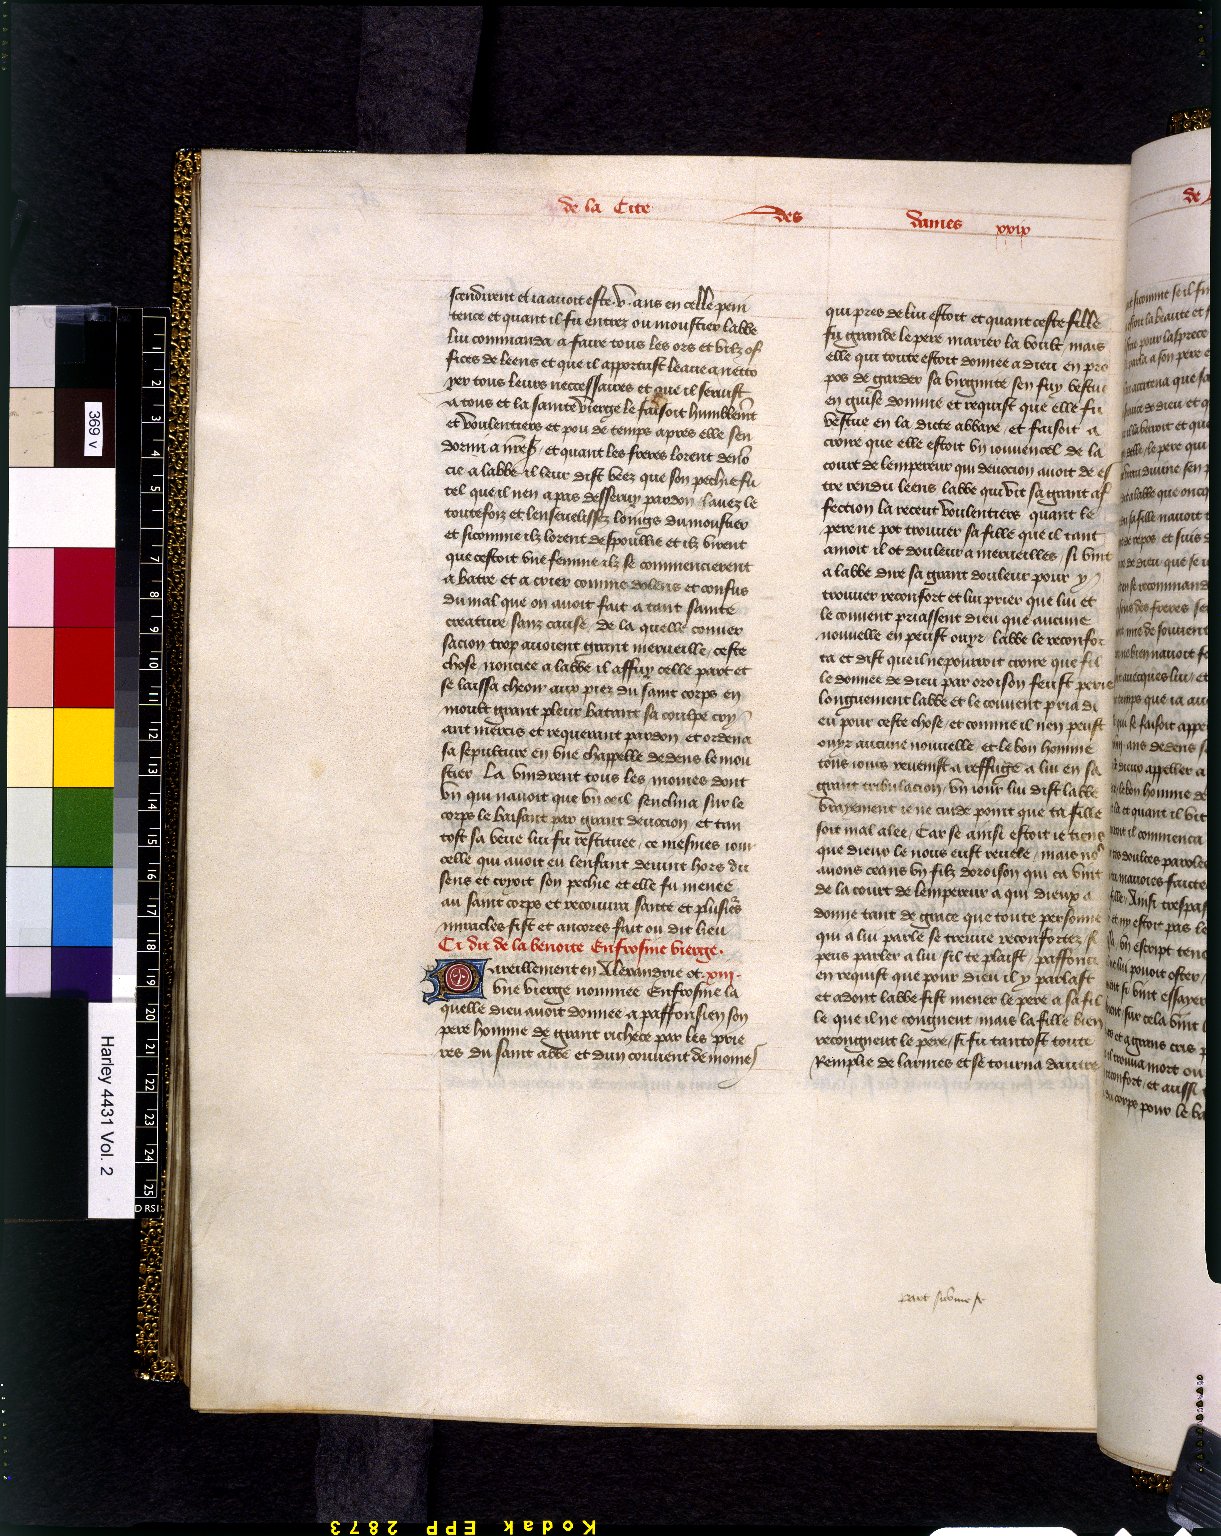 de la Cite des dames xxix
scendirent et ia auoit este .v. ans en celle peni
tence et quant il fu entrez ou moustier labbe
lui commanda a faire tous les ors et vilz of
fices de leens et que il apportast leaue a netto
yer tous leurs neccessaires et que il seruist
a tous et la sainte vierge le faisoit humblemt
et voulentiers et pou de temps apres elle sen
dormi a nres / et quant les freres lorent deno
cie a labbe il leur dist veez que son pechie fu
tel que il nen a pas desseruy pardon / lauez le
toutesfoiz et lenseuelissez loings du moustier
et sicomme ilz lorent despoullie et ilz virent
que cestoit vne femme ilz se commencierent
a batre et a crier comme dolens et confus
du mal que on auoit fait a tant sainte
creature sanz cause / de la quelle conuer
sacion trop auoient grant merueille / ceste
chose nonciee a labbe il affuy celle part et
se laissa cheoir aux piez du saint corps en
moult grant pleur batant sa coulpe cry
ant mercis et requerant pardon / et ordena
sa sepulture en vne chappelle dedens le mou
stier . La vindrent tous les moines dont
vn qui nauoit que vn oeil senclina sur le
corps le baisant par grant deuocion et tan
tost sa veue lui fu restituee / ce mesmes iour
celle qui auoit eu lenfant deuint hors du
sens et cryoit son pechie et elle fu menee
au saint corps et recouura sante et plusieurs
miracles fist et ancores fait ou dit lieu
Ci dit de la benoite Enfrosine vierge .
Pareillement en Alexandrie ot . xiii .
vne vierge nommee Enfrosine la
quelle dieu auoit donnee a paffonsien son
pere homme de grant richece par les prie
res du saint abbe et dun couuent de moines
qui pres de lui estoit et quant ceste fille
fu grande le pere marier la voult / mais
elle qui toute estoit donnee a dieu en pro
pos de garder sa virginite sen fuy vestue
en guise domme et requist que elle fu
vestue en la dicte abbaye / et faisoit a
croire que elle estoit vn iouuencel de la
court de lempereur qui deuocion auoit de es
tre rendu leens labbe qui vit sa grant af
fection la receut voulentiers quant le
pere ne pot trouuer sa fille que il tant
amoit il ot douleur a merueilles / si vint
a labbe dire sa grant douleur pour y
trouuer reconfort et lui prier que lui et
le couuent priassent dieu que aucune
nouuelle en peust ouyr / labbe le reconfor
ta et dist que il ne pourroit croire que fil
le donnee de dieu par oroison feust perie
longuement labbe et le couuent pria di
eu pour ceste chose / et comme il nen peust
ouyr aucune nouuelle et le bon homme
tous iours reuenist a reffuge a lui en sa
grant tribulacion / vn iour lui dist labbe
vrayement ie ne cuide point que ta fille
soit mal alee / Car se ainsi estoit ie tiens
que dieux le nous eust reuele / mais nos
auons ceans vn filz doroison qui ca vint
de la court de lempereur a qui dieux a
donne tant de grace que toute personne
qui a lui parle se treuue reconfortez si
peus parler a lui sil te plaist / paffonci
en requist que pour dieu il y parlast
et adont labbe fist mener le pere a sa fil
le que il ne congneut / mais la fille bien
recongneut le pere / si fu tantost toute
Remplie de larmes et se tourna dautre
369 v
Harley 4431 Vol. 2
1 2 3 4 5 7 8 9 10 11 12 13 14 15 16 17 18 19 20 21 22 23 24 25
Kodak EPP 2873